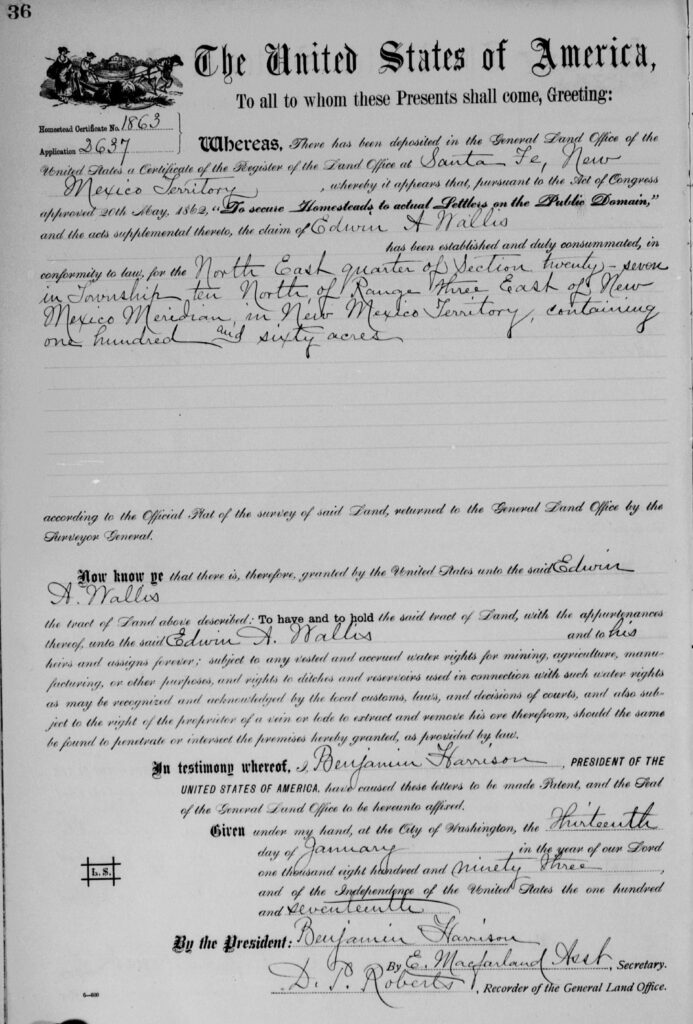 36
The United States of America,
To all to whom these Presents shall come, Greeting:
Homestead Certificate No. 1863
Application 2637
Whereas, There has been deposited in the General Land Office of the
United States a Certificate of the Register of the Land Office at Santa Fe, New
Mexico Territory, whereby it appears that, pursuant to the Act of Congress
approved 20th May, 1862, "To secure Homesteads to actual Settlers on the Public Domain,"
and the acts supplemental thereto, the claim of Edwin A Wallis
has been established and duly consummated, in
conformity to law, for the North East quarter of Section twenty-seven
in Township ten North of Range three East of New
Mexico Meridian, in New Mexico Territory, containing
one hundred and sixty acres
according to the Official Plat of the survey of said Land, returned to the General Land Office by the
Surveyor General.
Now know ye that there is, therefore, granted by the United States unto the said Edwin
A. Wallis
the tract of Land above described: To have and to hold the said tract of Land, with the appurtenances
thereof, unto the said Edwin A. Wallis and to his
heirs and assigns forever; subject to any vested and accrued water rights for mining, agriculture, manu-
facturing, or other purposes, and rights to ditches and reservoirs used in connection with such water rights
as may be recognized and acknowledged by the local customs, laws, and decisions of courts, and also sub-
ject to the right of the proprietor of a vein or lode to extract and remove his ore therefrom, should the same
be found to penetrate or intersect the premises hereby granted, as provided by law.
In testimony whereof, I, Benjamin Harrison, PRESIDENT OF THE
UNITED STATES OF AMERICA, have caused these letters to be made Patent, and the Seal
of the General Land Office to be hereunto affixed.
Given under my hand, at the City of Washington, the Thirteenth
day of January, in the year of our Lord
one thousand eight hundred and ninety three,
and of the Independence of the United States the one hundred
and seventeenth
L. S.
By the President: Benjamin Harrison
By E. Macfarland Asst, Secretary.
D. P. Roberts, Recorder of the General Land Office.
6—600